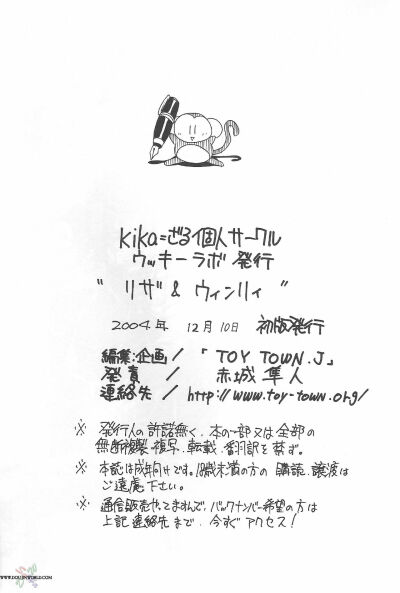 kika=ざる個人サークル
ウッキーラボ 発行
"リザ & ウィンリィ"
2004年 12月10日 初版発行
編集・企画/「TOY TOWN.J」
発責/赤城 隼人
連絡先/http://www.toy-town.org/
※ 発行人の許諾無く、本の一部又は全部の
無断複製・複写・転載・翻訳を禁ず。
※ 本誌は成年向けです。18歳未満の方の購読、譲渡は
ご遠慮下さい。
※ 通信販売もやってますんで、バックナンバー希望の方は
上記連絡先まで、今すぐアクセス!
WWW.DOUJINWORLD.COM